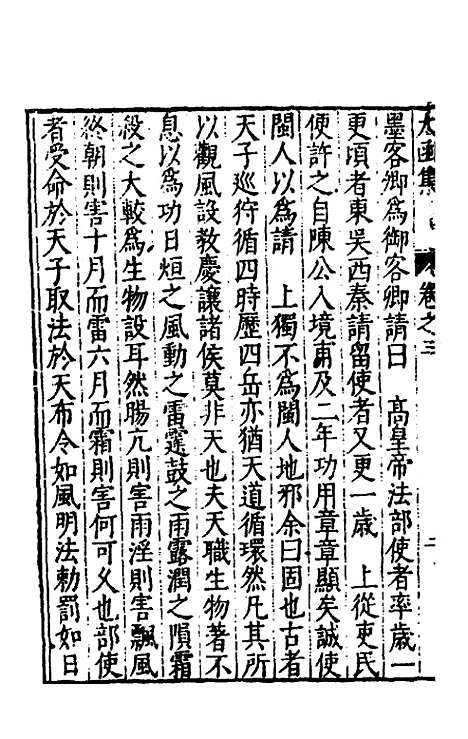 太函集 卷之三 二
墨客卿為御客卿請曰 高皇帝法部使者率歲一
更頃者東吳西秦請留使者又更一歲 上從吏民
便許之自陳公入境甫及二年功用章章顯矣誠使
閩人以為請 上獨不為閩人地邪余曰固也古者
天子巡狩循四時歷四岳亦猶天道循環然凡其所
以觀風設教慶讓諸侯莫非天也夫天職生物著不
息以為功日烜之風動之雷霆鼓之雨露潤之隕霜
殺之大較為生物設耳然暘亢則害雨淫則害飄風
終朝則害十月而雷六月而霜則害何可乂也部使
者受命於天子取法於天布令如風明法勅罰如日